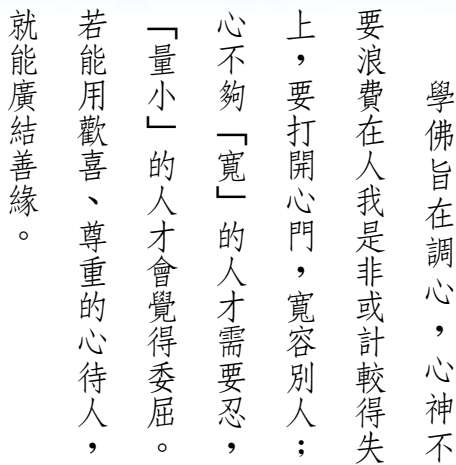 學佛旨在調心，心神不
要浪費在人我是非或計較得失
上，要打開心門，寬容別人；
心不夠「寬」的人才需要忍，
「量小」的人才會覺得委屈。
若能用歡喜、尊重的心待人，
就能廣結善緣。